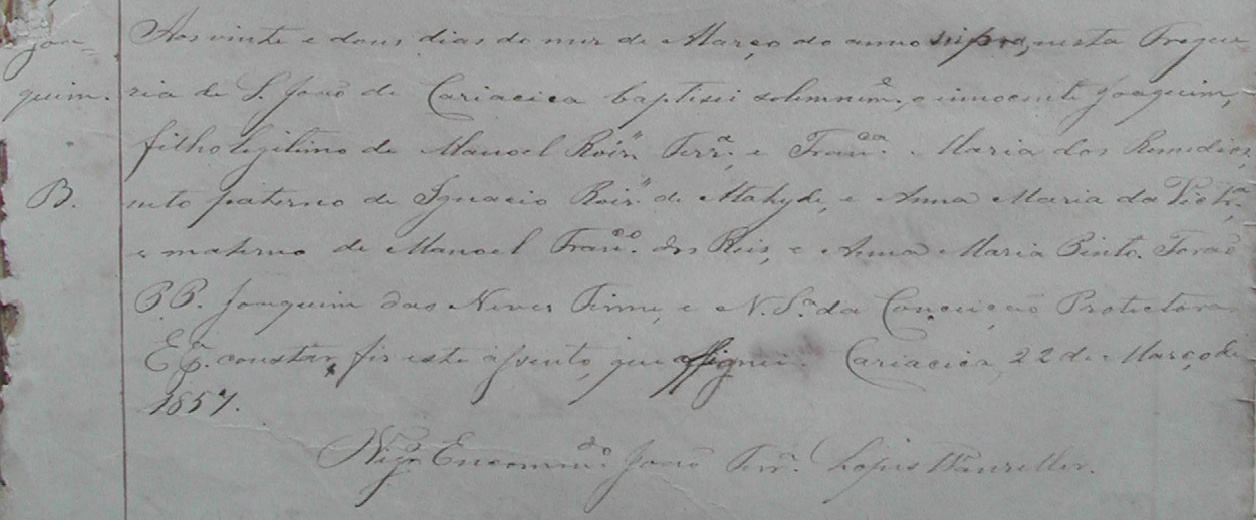 Joa=
quim.
B.
Aos vinte e dous dias do mez de Março do anno supra, nesta Fregue
zia de S. João de Cariacica baptisei solemnem.e, o innocente Joaquim,
filho legitimo de Manoel Roiz Ferr.a, e Fran.ca Maria dos Remedios,
neto paterno de Ignacio Roiz de Atahyde, e Anna Maria da Vict.a,
e materno de Manoel Fran.co dos Reis, e Anna Maria Pinto. Forão
P.P. Joaquim das Neves Firme, e N. Sr.a da Conceição Protectora
E p.a constar, fis este assento, que assignei. Cariacica 22 de Março de
1857.
Vig.o Encomm.do João Ferr.a Lopes Wanzeller.